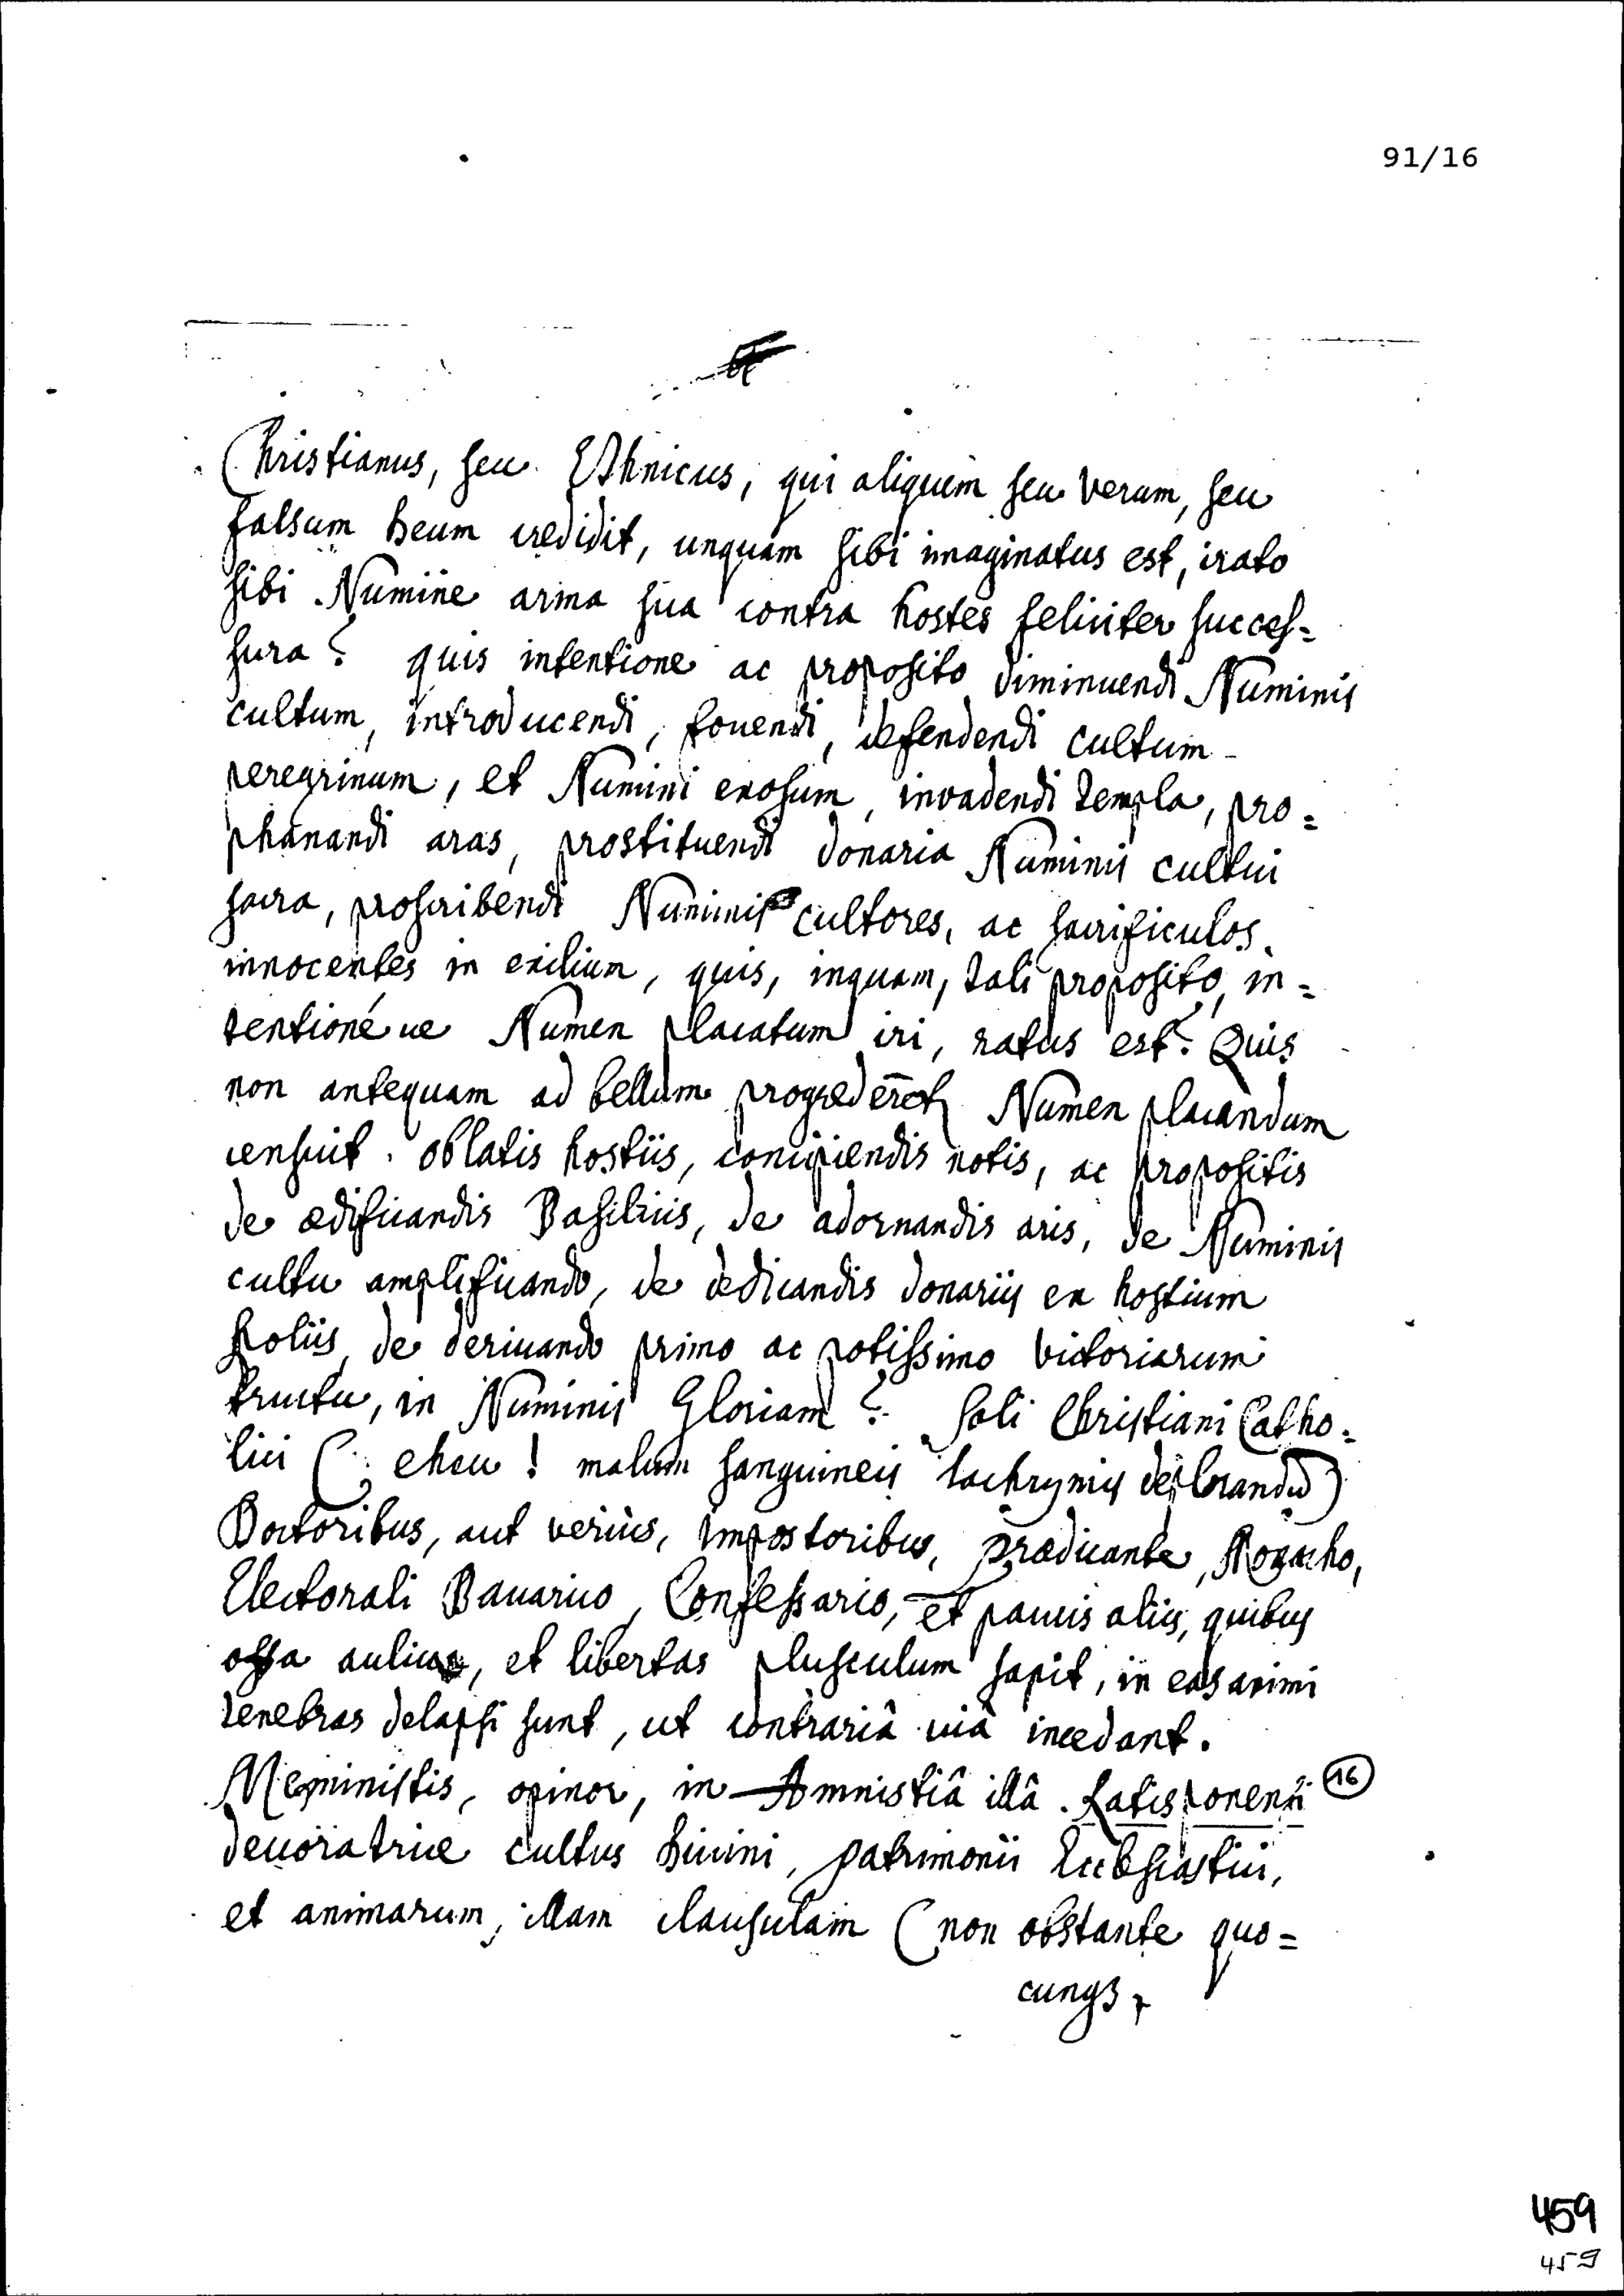 91/16
Christianus, seu Ethnicus, qui aliquem seu verum, seu
falsum Deum credidit, unquam sibi imaginatus est, irato
sibi Numine arma sua contra hostes feliciter succes=
sura? quis intentione ac proposito diminuendi Numinis
cultum, introducendi, fouendi, defendendi cultum
peregrinum, et Numini exosum, invadendi templa, pro=
phanandi aras, prostituendi donaria Numinis cultui
sacra, proscribendi Numinis cultores, ac sacrificulos
innocentes in exilium, quis, inquam, tali proposito, in=
tentionéue Numen placatum iri, ratus est? Quis
non antequam ad bellum progrederet Numen placandum
censuit. oblatis hostiis, concipiendis votis, ac propositis
de ædificandis Basilicis, de adornandis aris, de Numinis
cultu amplificando, de dedicandis donariis ex hostium
spoliis, de deriuando primo ac potissimo victoriarum
fructu, in Numinis Gloriam? Soli Christiani Catho=
lici (: eheu! malum sanguineis lachrymis deplorandū)
Doctoribus, aut verius, impostoribus, prædicante,
Electorali Bauarico, Confessario, et paucis aliis, quibus
offa aulica, et libertas plusculum sapit, in eas animi
tenebras delapsi sunt, ut contrariâ uiâ incedant.
Meministis, opinor, in Amnistiâ illâ Ratisponensi (16)
deuoratrice cultus Diuini, patrimonii Ecclesiastici,
et animarum, illam clausulam (non obstante quo=
cunq3
459
459